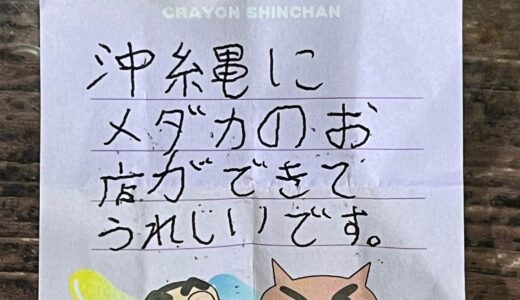 CRAYON SHINCHAN
沖縄に
メダカのお
店ができて
うれしいです。